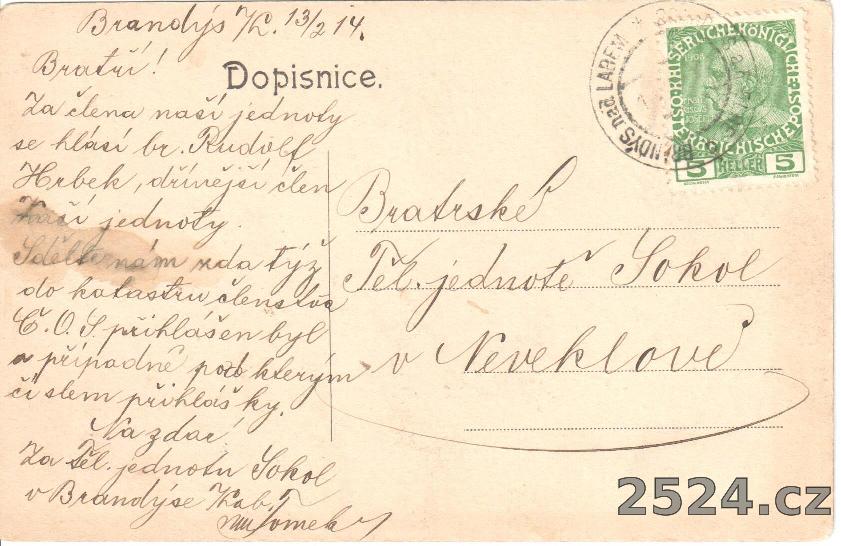 Brandýs n/L. 13/2 14.
Bratři!
Dopisnice.
Za člena naší jednoty
se hlásí br. Rudolf
Hrbek, dřínější člen
Vaší jednoty.
Sdělte nám zda týž
do katastru členstva
Č.O.S. přihlášen byl
a případně pod kterým
číslem přihlášky.
Na zdar!
Za Těl. jednotu Sokol
v Brandýse
Bratrské
Těl. jednotě Sokol
v Neveklově
BRANDÝS nad LABEM
KAISERLICHE KÖNIGLICHE
ÖSTERREICHISCHE
1908
5 HELLER 5
2524.cz